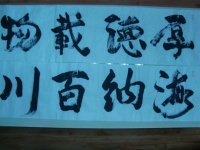 厚德載物
海纳百川